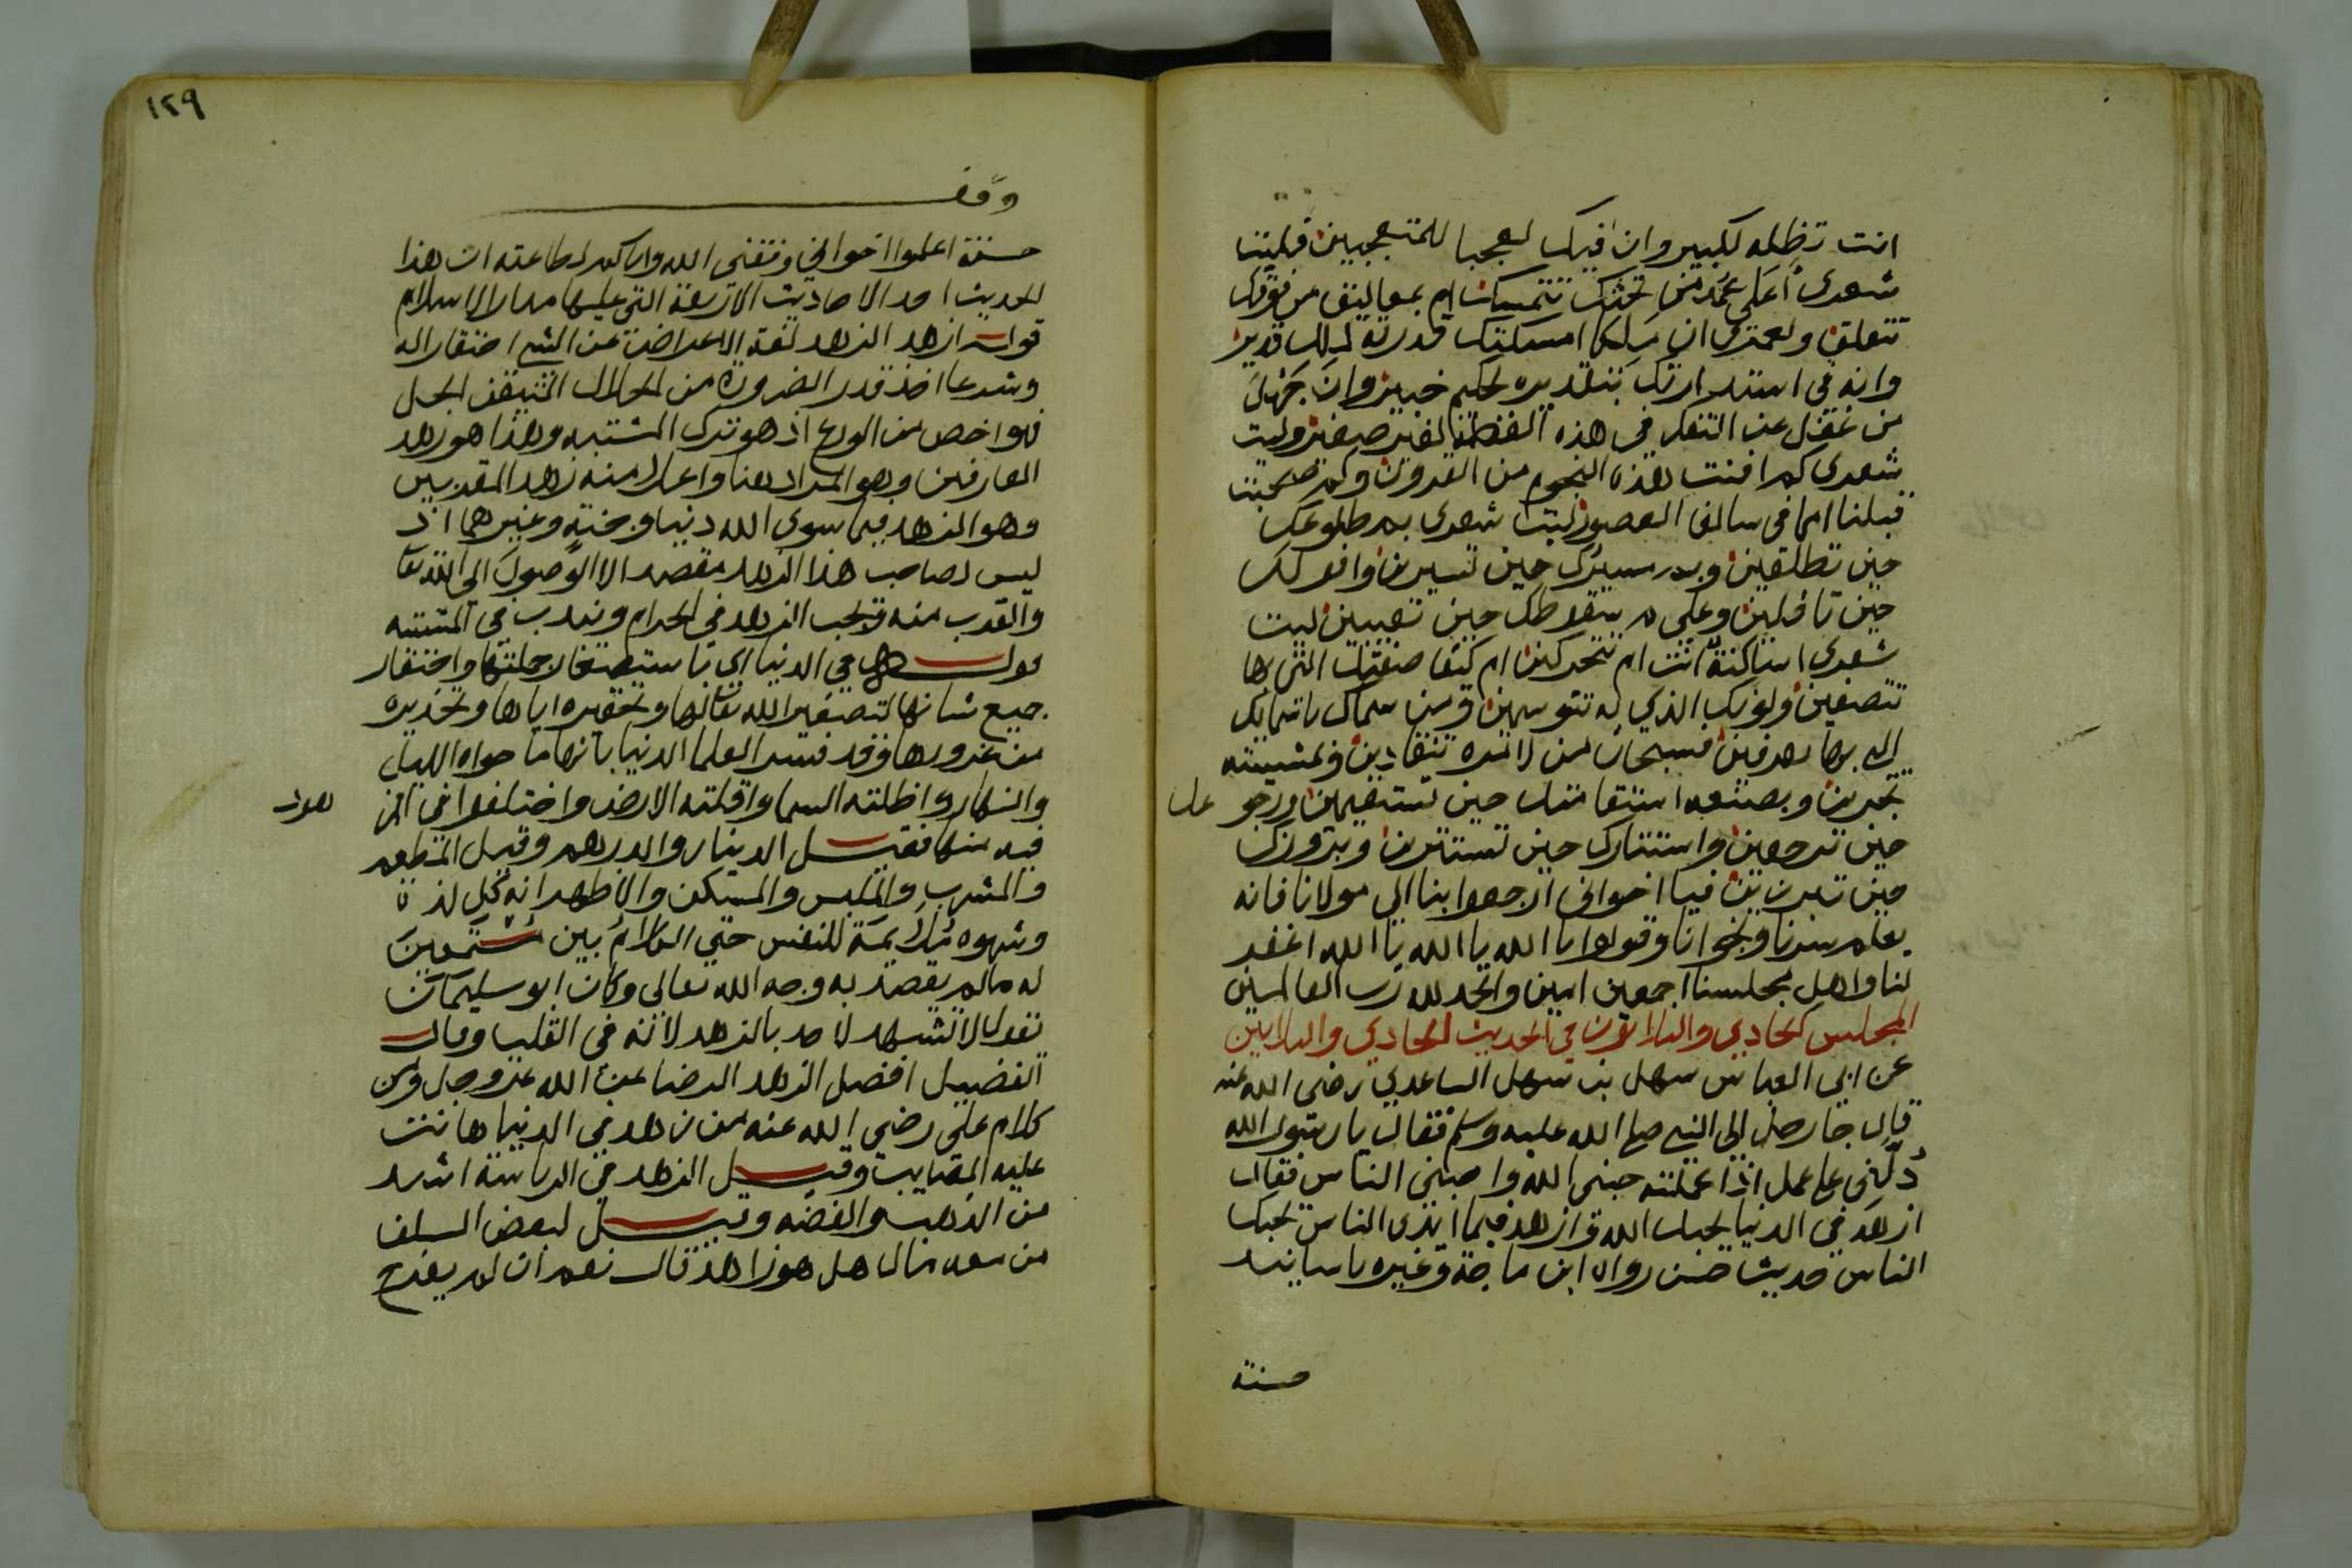 انت تظله لكبير وان فيك لعجبا للمتعجبين فليت
شعري أعلى عمد من تحتك تتمسكين ام بمعاليق من فوقك
تتعلقين ولعمري ان ملكا امسكتك قدرته لملك قدير
وانه في استدارتك بتقديره لحكيم خبير وان جهل
من غفل عن التفكر في هذه العظمة لغير صغير وليت
شعري كم افنت هذه النجوم من القرون وكم صحبت
قبلنا امما في سالف العصور ليت شعري بم طلوعك
حين تطلعين وبم مسيرك حين تسيرين وافولك
حين تافلين وعلى م سقوطك حين تغيبين ليت
شعري اساكنة انت ام تتحركين ام كيف صفتك التي بها
تتصفين ولونك الذي به تتوسمين ومن سماك باسمائك
التي بها تعرفين فسبحان من لامره تنقادين وبمشيئته
تجرين وبصنعه استقامتك حين تستقيمين ورجوعك
حين ترجعين واستتارك حين تستترين وبروزك
حين تبرزين فيا اخواني ارجعوا بنا الى مولانا فانه
يعلم سرنا ونجوانا وقولوا يا الله يا الله يا الله اغفر
لنا ولاهل مجلسنا اجمعين امين والحمد لله رب العالمين
المجلس الحادي والثلاثون في الحديث الحادي والثلاثين
عن ابي العباس سهل بن سهل الساعدي رضي الله عنه
قال جا رجل الى النبي صلى الله عليه وسلم فقال يا رسول الله
دلني على عمل اذا عملته حبني الله واحبني الناس فقال
ازهد في الدنيا يحبك الله وازهد فيما ايدي الناس يحبك
الناس حديث حسن رواه ابن ماجة وغيره باسانيد
حسنة
١٢٩
وقف
حسنة اعلموا اخواني وفقني الله واياكم لطاعته ان هذا
الحديث احد الاحاديث الاربعة التي عليها مدار الاسلام
قوله ازهد الزهد لغة الاعراض عن الشي احتقارا له
وشرعا اخذ قدر الضرورة من الحلال المتيقن الحل
فهو اخص من الورع اذ هو ترك المشتبه وهذا هو زهد
العارفين وهو المراد هنا واعلا منه زهد المقربين
وهو الزهد فيما سوى الله دنيا وجنة وغيرهما اذ
ليس لصاحب هذا الزهد مقصد الا الوصول الى الله تعالى
والقرب منه ويجب الزهد في الحرام ويندب في المشتبه
قوله في الدنيا اي باستصغار جملتها واحتقار
جميع شانها لتصغير الله تعالى لها وتحقيره اياها وتحذيره
من غرورها وقد فسر العلما الدنيا بانها ما حواه الليل
والنهار واظلته السما واقلته الارض واختلفوا في المزهود
فيه منها فقيل الدينار والدرهم وقيل المطعم
والمشرب والملبس والمسكن والاظهر انه كل لذة
وشهوه ملايمة للنفس حتى الكلام بين مستمعين
له ما لم يقصد به وجه الله تعالى وكان ابو سليمان
يقول لا تشهد لاحد بالزهد لانه في القلب وقال
الفضيل افضل الزهد الرضا عن الله عز وجل ومن
كلام علي رضي الله عنه من زهد في الدنيا هانت
عليه المصايب وقيل الزهد في الرياسة اشد
من الذهب والفضه وقيل لبعض السلف
من معه مال هل هو زاهد قال نعم ان لم يفرح